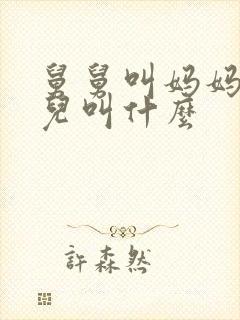 舅舅叫妈妈
兒叫什麼
許森然